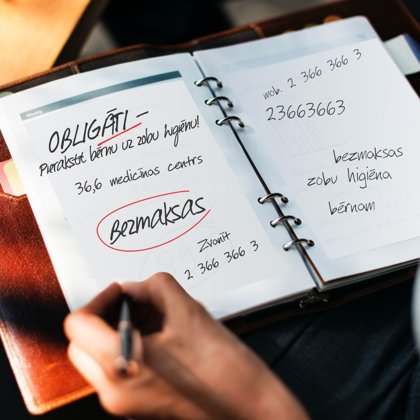 OBLIGĀTI –
Pierakstīt bērnu uz zobu higiēnu!
36,6 medicīnas centrs
Bezmaksas
Zvanīt
2 366 366 3
mob. 2 366 366 3
23663663
bezmaksas
zobu higiēna
bērnam